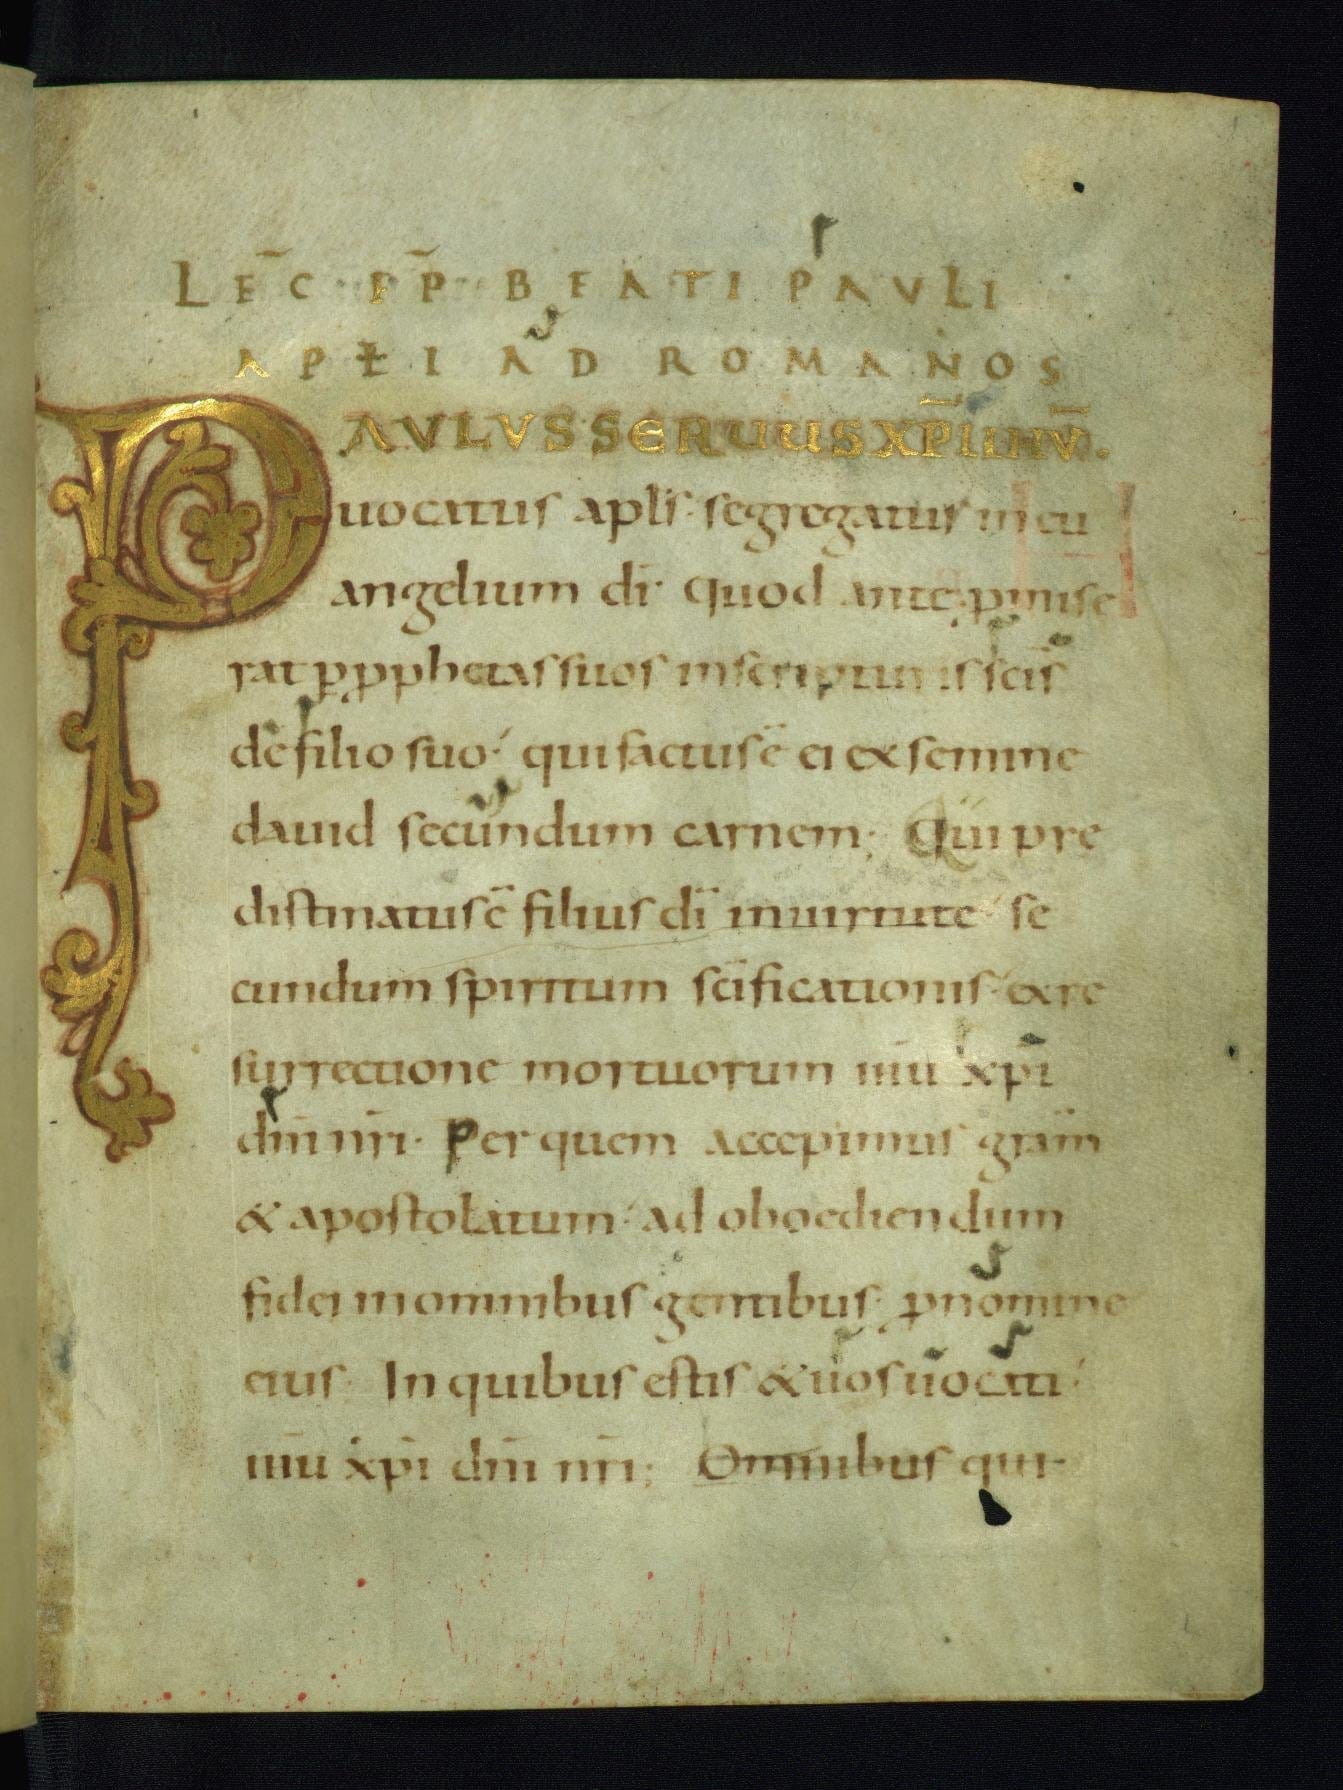 LEC̄ EP̄ BEATI PAULI
APŁI AD ROMANOS
PAULUS SERUUS XP̄I IHŪ.
uocatus apl̄s· segregatus in eu
angelium dī· Quod ante p̱mise
rat p̱ p̱phetas suos in scripturis sc̄is
de filio suo· qui factus ē ei ex semine
dauid secundum carnem; Qui pre
distinatus ē filius dī in uirtute se
cundum spiritum sc̄ificationis· ex re
surrectione mortuorum ihū xp̄i
dn̄i nr̄i· Per quem accepimus gr̄am
& apostolatum· ad oboediendum
fidei in omnibus gentibus; p̱ nomine
eius· In quibus estis & uos uocati·
ihū xp̄i dn̄i nr̄i; Omnibus qui·